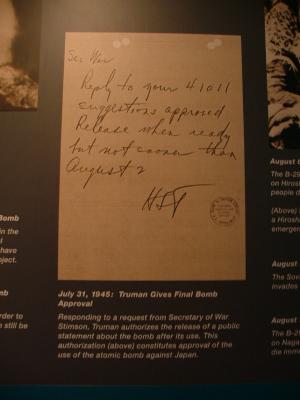 Sec War
Reply to your 41011
suggestions approved
Release when ready
but not sooner than
August 2
HST
July 31, 1945: Truman Gives Final Bomb
Approval
Responding to a request from Secretary of War
Stimson, Truman authorizes the release of a public
statement about the bomb after its use. This
authorization (above) constitutes approval of the
use of the atomic bomb against Japan.
Bomb
in the
have
ject.
mb
order to
still be
August
The B-29
on Hirosh
people d
(Above)
a Hirosh
emergen
August
The Sov
invades
August
The B-29
on Naga
the imm